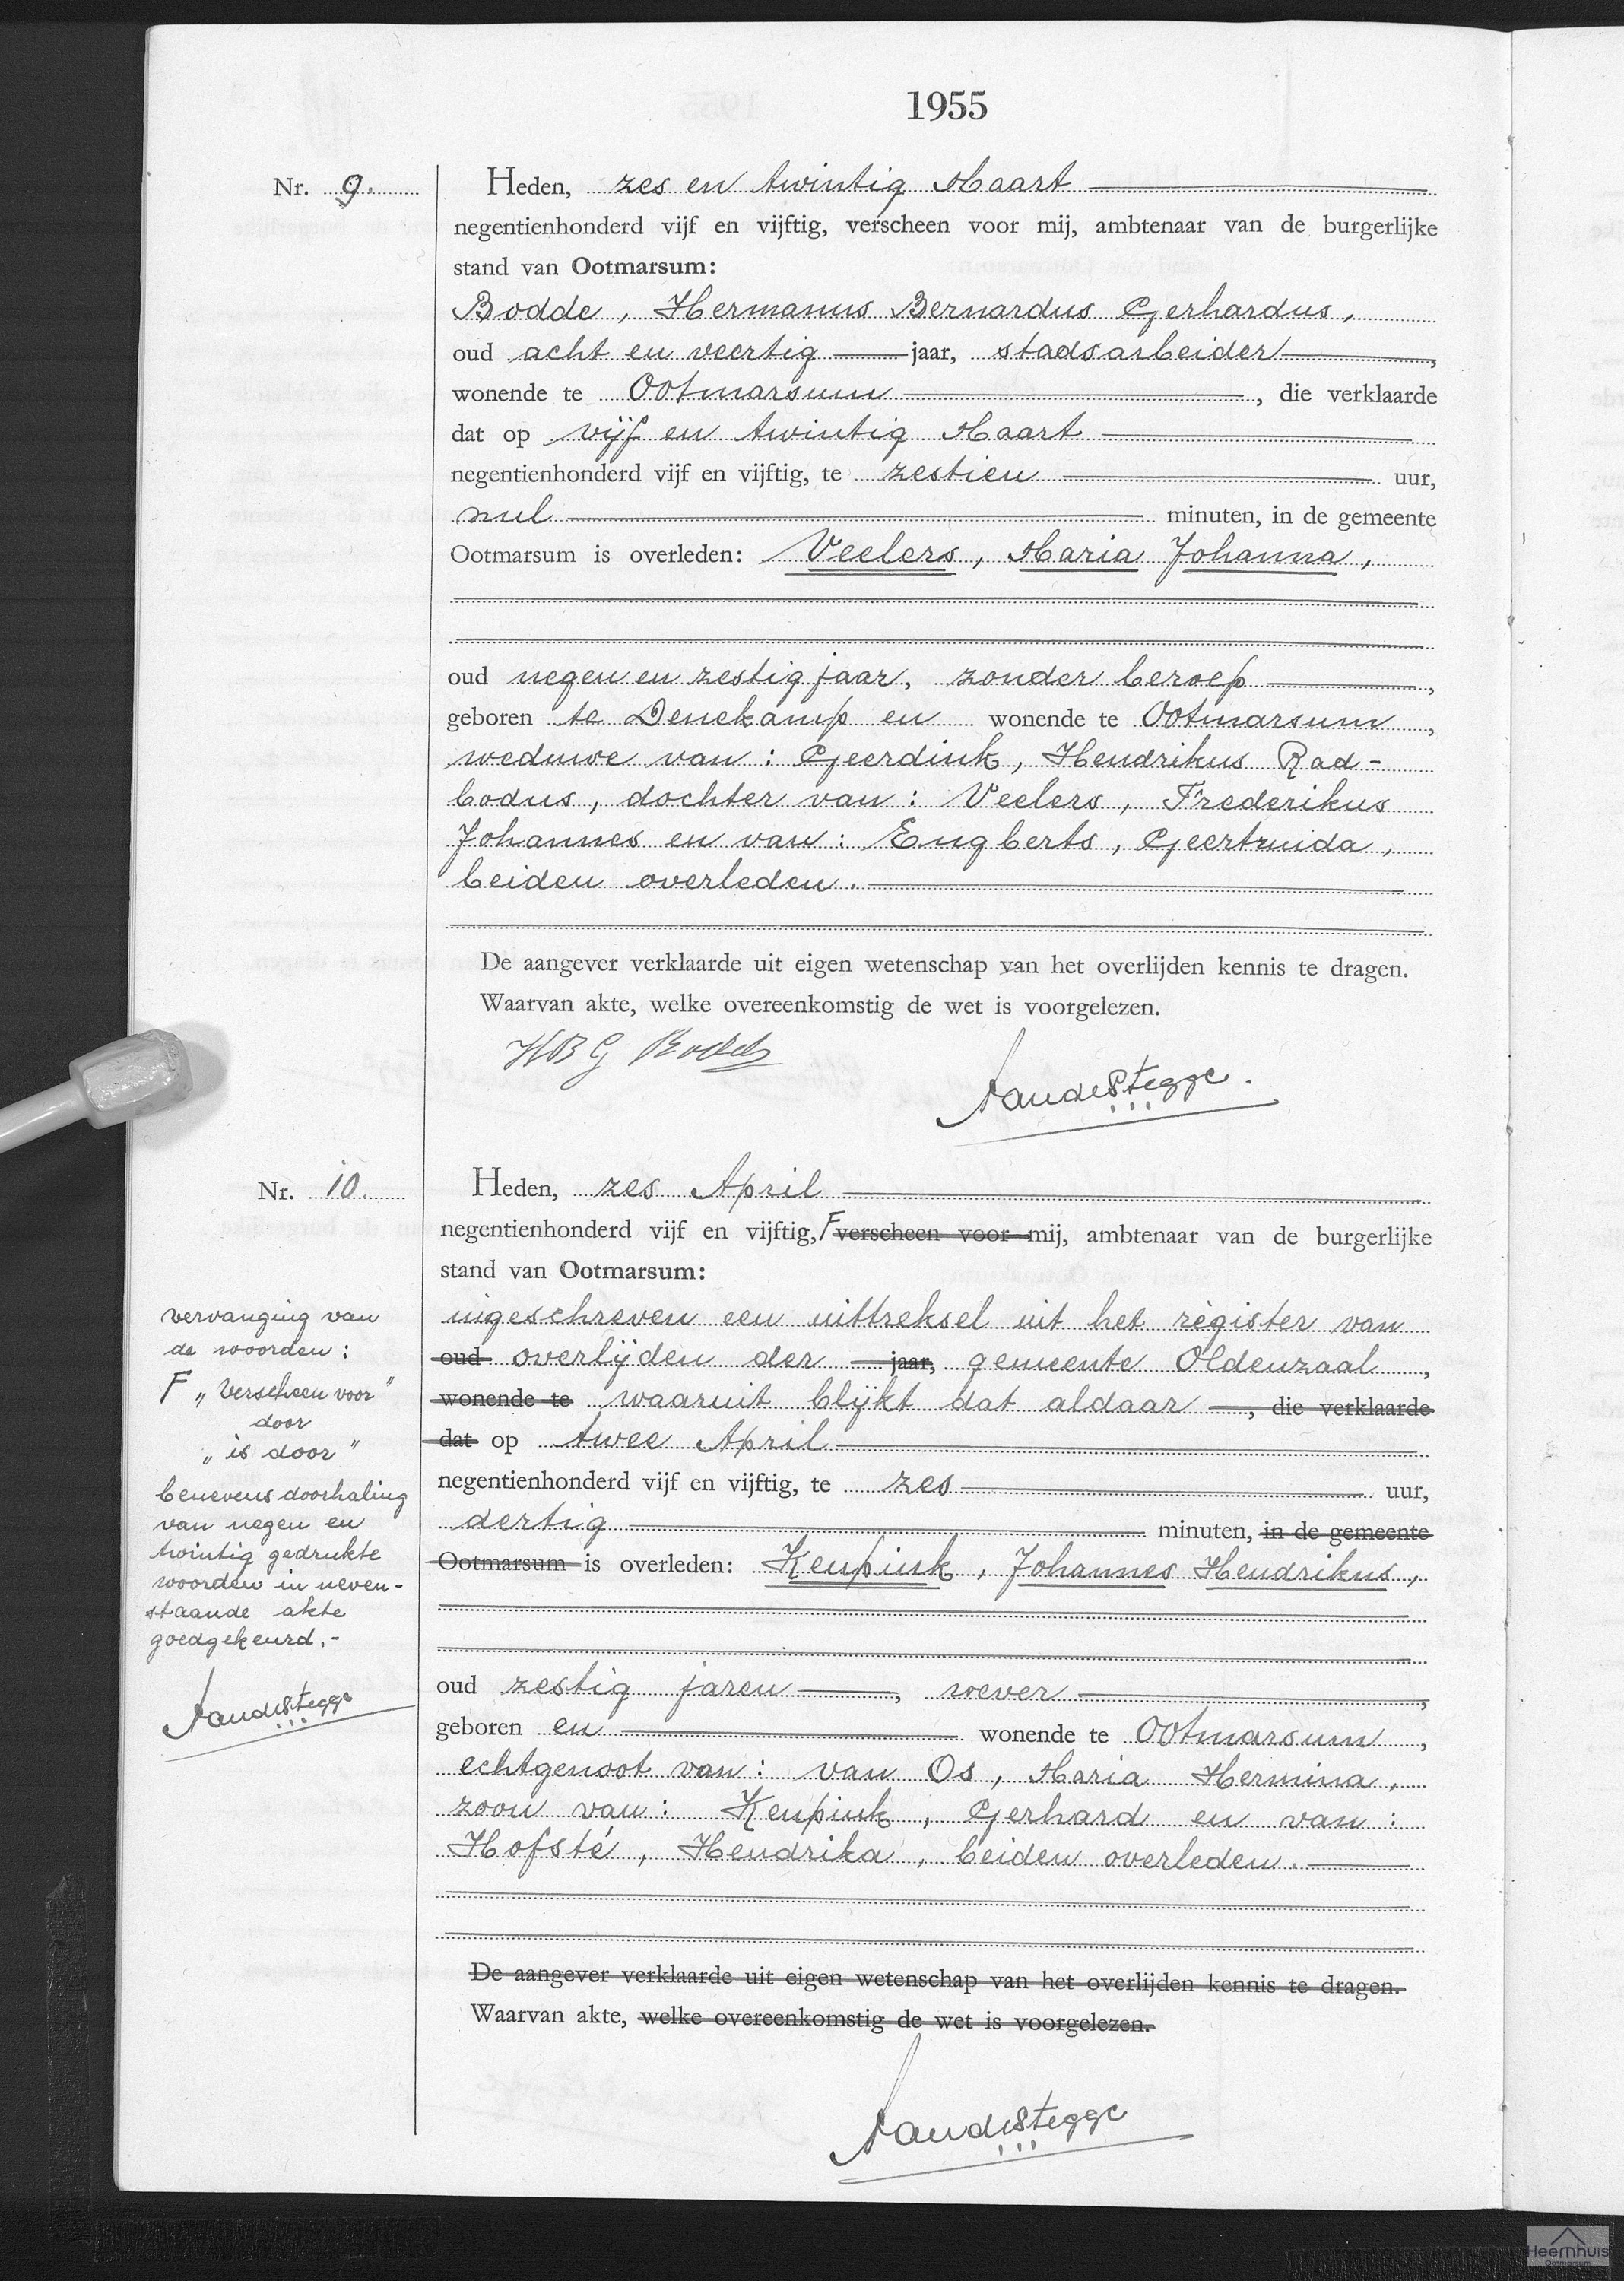 1955
Nr. 9.
Heden, zes en twintig Maart
negentienhonderd vijf en vijftig, verscheen voor mij, ambtenaar van de burgerlijke
stand van Ootmarsum:
Bodde, Hermanus Bernardus Gerhardus,
oud acht en veertig jaar, stadsarbeider,
wonende te Ootmarsum, die verklaarde
dat op vijf en twintig Maart
negentienhonderd vijf en vijftig, te zestien uur,
nul minuten, in de gemeente
Ootmarsum is overleden: Veelers, Maria Johanna,
oud negen en zestig jaar, zonder beroep,
geboren te Denekamp en wonende te Ootmarsum,
weduwe van: Geerdink, Hendrikus Rad-
bodus, dochter van: Veelers, Frederikus
Johannes en van: Engberts, Geertruida,
beiden overleden.
De aangever verklaarde uit eigen wetenschap van het overlijden kennis te dragen.
Waarvan akte, welke overeenkomstig de wet is voorgelezen.
HBG Bodde
Aandestegge.
Nr. 10.
Heden, zes April
negentienhonderd vijf en vijftig, F verscheen voor mij, ambtenaar van de burgerlijke
stand van Ootmarsum:
ingeschreven een uittreksel uit het register van
oud overlijden der jaar, gemeente Oldenzaal,
wonende te waaruit blijkt dat aldaar, die verklaarde
dat op twee April
negentienhonderd vijf en vijftig, te zes uur,
dertig minuten, in de gemeente
Ootmarsum is overleden: Kenpink, Johannes Hendrikus,
oud zestig jaren, wever,
geboren en wonende te Ootmarsum,
echtgenoot van: van Os, Maria Hermina,
zoon van: Kenpink, Gerhard en van:
Hofsté, Hendrika, beiden overleden.
De aangever verklaarde uit eigen wetenschap van het overlijden kennis te dragen.
Waarvan akte, welke overeenkomstig de wet is voorgelezen.
Aandestegge
vervanging van
de woorden:
F „verscheen voor"
door
„is door"
benevens doorhaling
van negen en
twintig gedrukte
woorden in neven-
staande akte
goedgekeurd.-
Aandestegge
Heemhuis
Ootmarsum